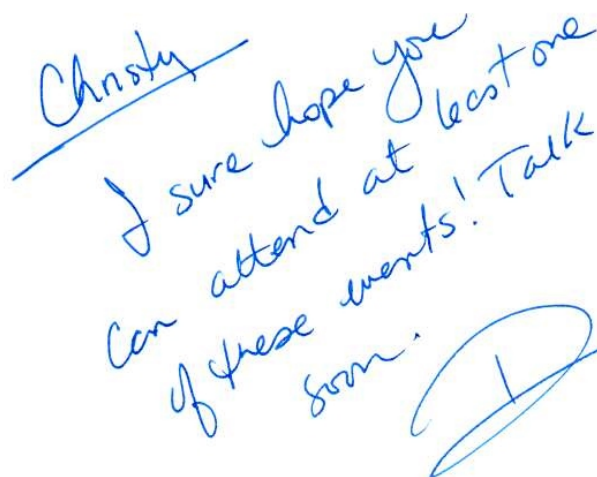 Christy
I sure hope you
can attend at least one
of these events! Talk
soon.
D